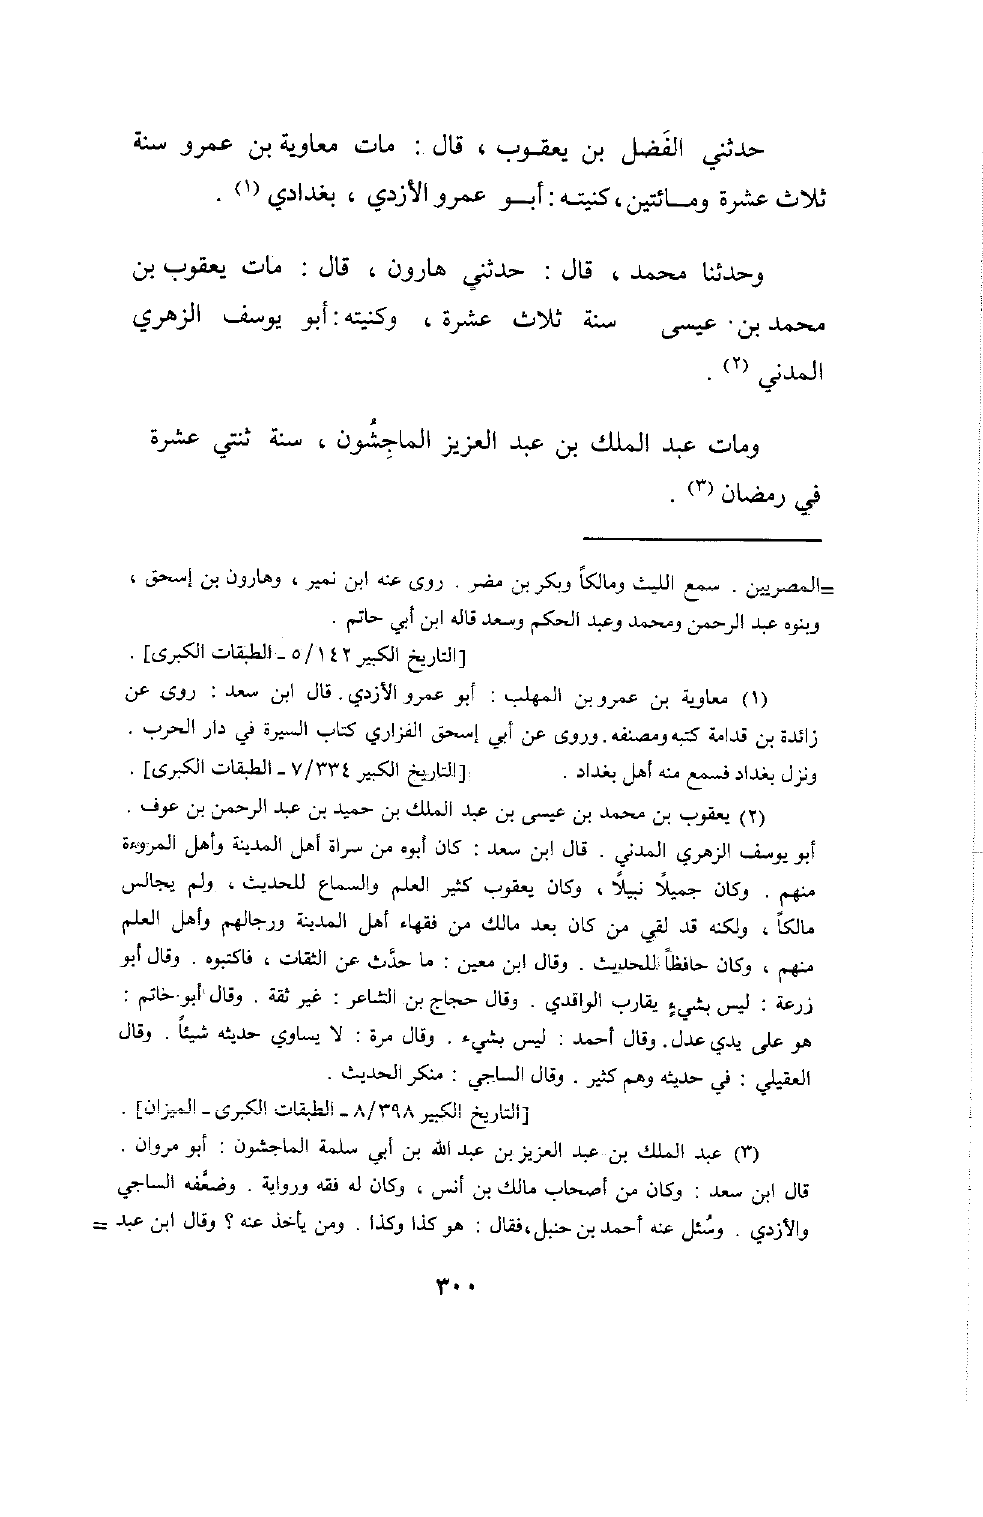 حدثني الفَضل بن يعقـوب ، قال : مات معاوية بن عمرو سنة
ثلاث عشرة ومـائتين، كنيتـه : أبـو عمرو الأزدي ، بغدادي (١) .
وحدثنا محمد ، قال : حدثني هارون ، قال : مات يعقوب بن
محمد بن عيسى سنة ثلاث عشرة ، وكنيته : أبو يوسف الزهري
المدني (٢) .
ومات عبد الملك بن عبد العزيز الماجِشُون ، سنة ثنتي عشرة
في رمضان (٣) .
=المصريين . سمع الليث ومالكاً وبكر بن مضر . روى عنه ابن نمير ، وهارون بن إسحق ،
وبنوه عبد الرحمن ومحمد وعبد الحكم وسعد قاله ابن أبي حاتم .
[التاريخ الكبير ٥/١٤٢ ـ الطبقات الكبرى] .
(١) معاوية بن عمرو بن المهلب : أبو عمرو الأزدي . قال ابن سعد : روى عن
زائدة بن قدامة كتبه ومصنفه . وروى عن أبي إسحق الفزاري كتاب السيرة في دار الحرب .
ونزل بغداد فسمع منه أهل بغداد . [التاريخ الكبير ٧/٣٣٤ ـ الطبقات الكبرى] .
(٢) يعقوب بن محمد بن عيسى بن عبد الملك بن حميد بن عبد الرحمن بن عوف .
أبو يوسف الزهري المدني . قال ابن سعد : كان أبوه من سراة أهل المدينة وأهل المروءة
منهم . وكان جميلاً نبيلاً ، وكان يعقوب كثير العلم والسماع للحديث ، ولم يجالس
مالكاً ، ولكنه قد لقي من كان بعد مالك من فقهاء أهل المدينة ورجالهم وأهل العلم
منهم ، وكان حافظاً للحديث . وقال ابن معين : ما حدَّث عن الثقات ، فاكتبوه . وقال أبو
زرعة : ليس بشيءٍ يقارب الواقدي . وقال حجاج بن الشاعر : غير ثقة . وقال أبو حاتم :
هو على يدي عدل . وقال أحمد : ليس بشيء . وقال مرة : لا يساوي حديثه شيئاً . وقال
العقيلي : في حديثه وهم كثير . وقال الساجي : منكر الحديث .
[التاريخ الكبير ٨/٣٩٨ ـ الطبقات الكبرى ـ الميزان] .
(٣) عبد الملك بن عبد العزيز بن عبد الله بن أبي سلمة الماجشون : أبو مروان .
قال ابن سعد : وكان من أصحاب مالك بن أنس ، وكان له فقه ورواية . وضعَّفه الساجي
والأزدي . وسُئل عنه أحمد بن حنبل ، فقال : هو كذا وكذا . ومن يأخذ عنه ؟ وقال ابن عبد =
٣٠٠